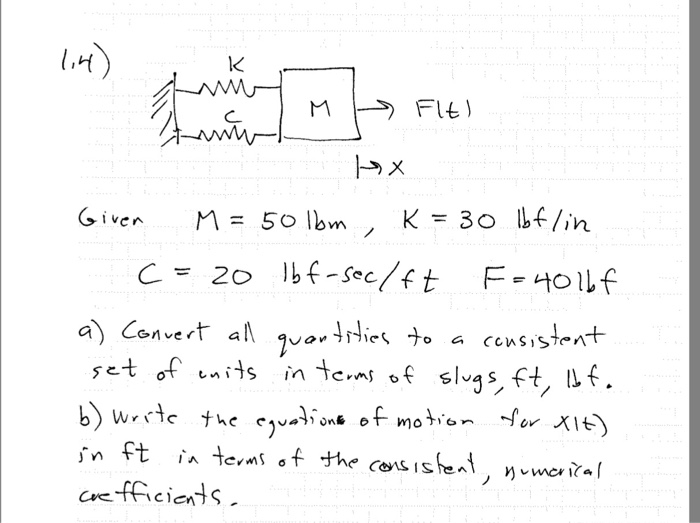 1.4)
K
C
M
F(t)
x
Given M = 50 lbm, K = 30 lbf/in
C = 20 lbf-sec/ft F = 40 lbf
a) Convert all quantities to a consistent
set of units in terms of slugs, ft, lbf.
b) Write the equations of motion for x(t)
in ft in terms of the consistent, numerical
coefficients.